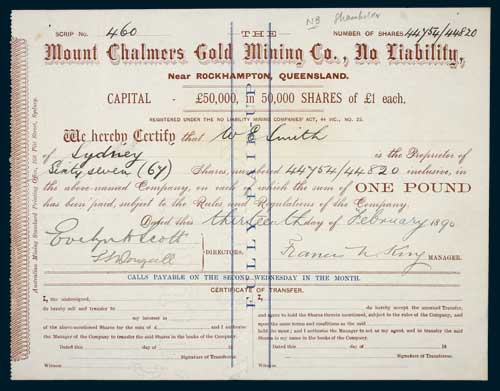 NB Shareholder
SCRIP No. 460 THE NUMBER OF SHARES 44754/44820
Mount Chalmers Gold Mining Co., No Liability,
Near ROCKHAMPTON, QUEENSLAND.
CAPITAL - £50,000, in 50,000 SHARES of £1 each.
REGISTERED UNDER THE NO LIABILITY MINING COMPANIES' ACT, 44 VIC., NO. 23.
We hereby Certify that W E Smith
of Sydney is the Proprietor of
Sixty seven (67) Shares, numbered 44754/44820 inclusive, in
the above-named Company, on each of which the sum of ONE POUND
has been paid, subject to the Rules and Regulations of the Company.
Dated this thirteenth day of February 1890
Evelyn A Scott
DIRECTORS. Francis W King MANAGER.
CALLS PAYABLE ON THE SECOND WEDNESDAY IN THE MONTH.
FULLY PAID-UP
CERTIFICATE OF TRANSFER.
I, the undersigned,
do hereby sell and transfer to
my interest in
of the above-mentioned Shares for the sum of £ and I authorise
the Manager of the Company to transfer the said Shares in the books of the Company.
Dated this day of 18
Signature of Transferror.
Witness
I, do hereby accept the annexed Transfer,
and agree to hold the Shares therein mentioned, subject to the rules of the Company, and
upon the same terms and conditions as the said
held the same; and I authorise the Manager to act as my agent, and to transfer the said
Shares in my name in the books of the Company.
Dated this day of 18
Signature of Transferree.
Witness
Australian Mining Standard Printing Office, 108 Pitt Street, Sydney.